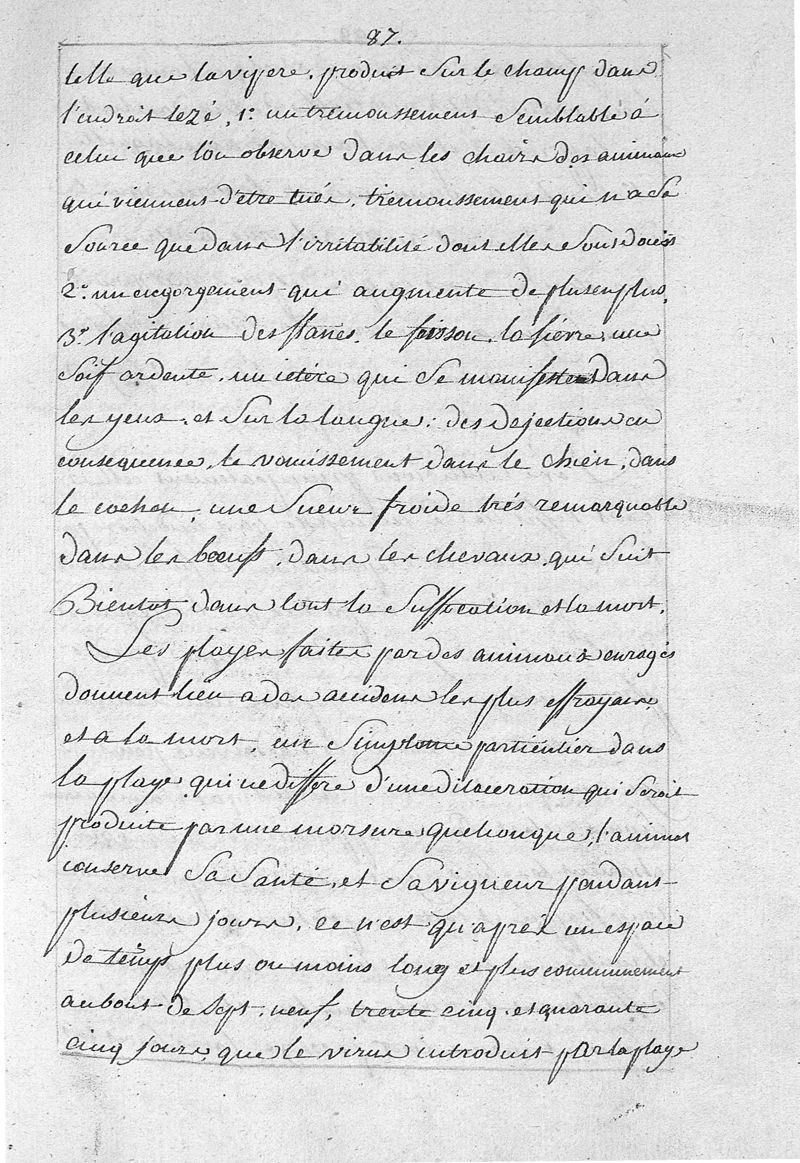 87.
telle que la vipere, produit sur le champ dans
l'endroit lezé, 1.° un tremoussement semblable à
celui que l'on observe dans les chairs des animaux
qui viennent d'etre tués, tremoussement qui n'a sa
source que dans l'irritabilité dont elles sont douées
2.° un engorgement qui augmente de plus en plus,
3.° l'agitation des flancs, le frisson, la fièvre, une
soif ardente, un ictére qui se manifeste dans
les yeux, et sur la langue; des dejections en
consequence, le vomissement dans le chien, dans
le cochon, une sueur froide trés remarquable
dans les bœufs, dans les chevaux, qui suit
Bientot dans tout la suffocation et la mort.
Les playes faites par des animaux enragés
donnent lieu a des accidens les plus effroyans
et a la mort, un simptome particulier dans
la playe qui ne differe d'une dilaceration qui seroit
produite par une morsure quelconque, l'animal
conserve sa santé, et sa vigueur pendant
plusieurs jours, ce n'est qu'aprés un espace
de temps plus ou moins long et plus communement
au bout de sept, neuf, trente cinq, et quarante
cinq jours que le virus introduit par la playe